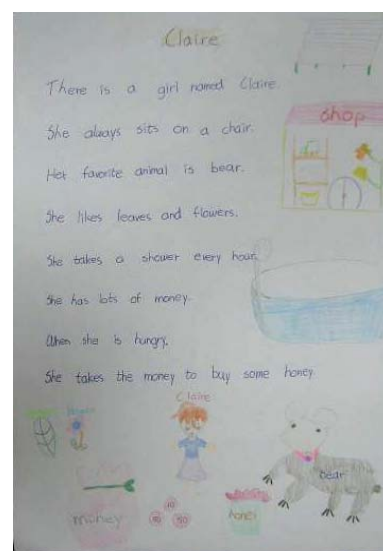 Claire
There is a girl named Claire.
She always sits on a chair.
shop
Her favorite animal is bear.
She likes leaves and flowers.
She takes a shower every hour.
She has lots of money.
When she is hungry,
She takes the money to buy some honey.
Claire
bear
money
10
50
honey